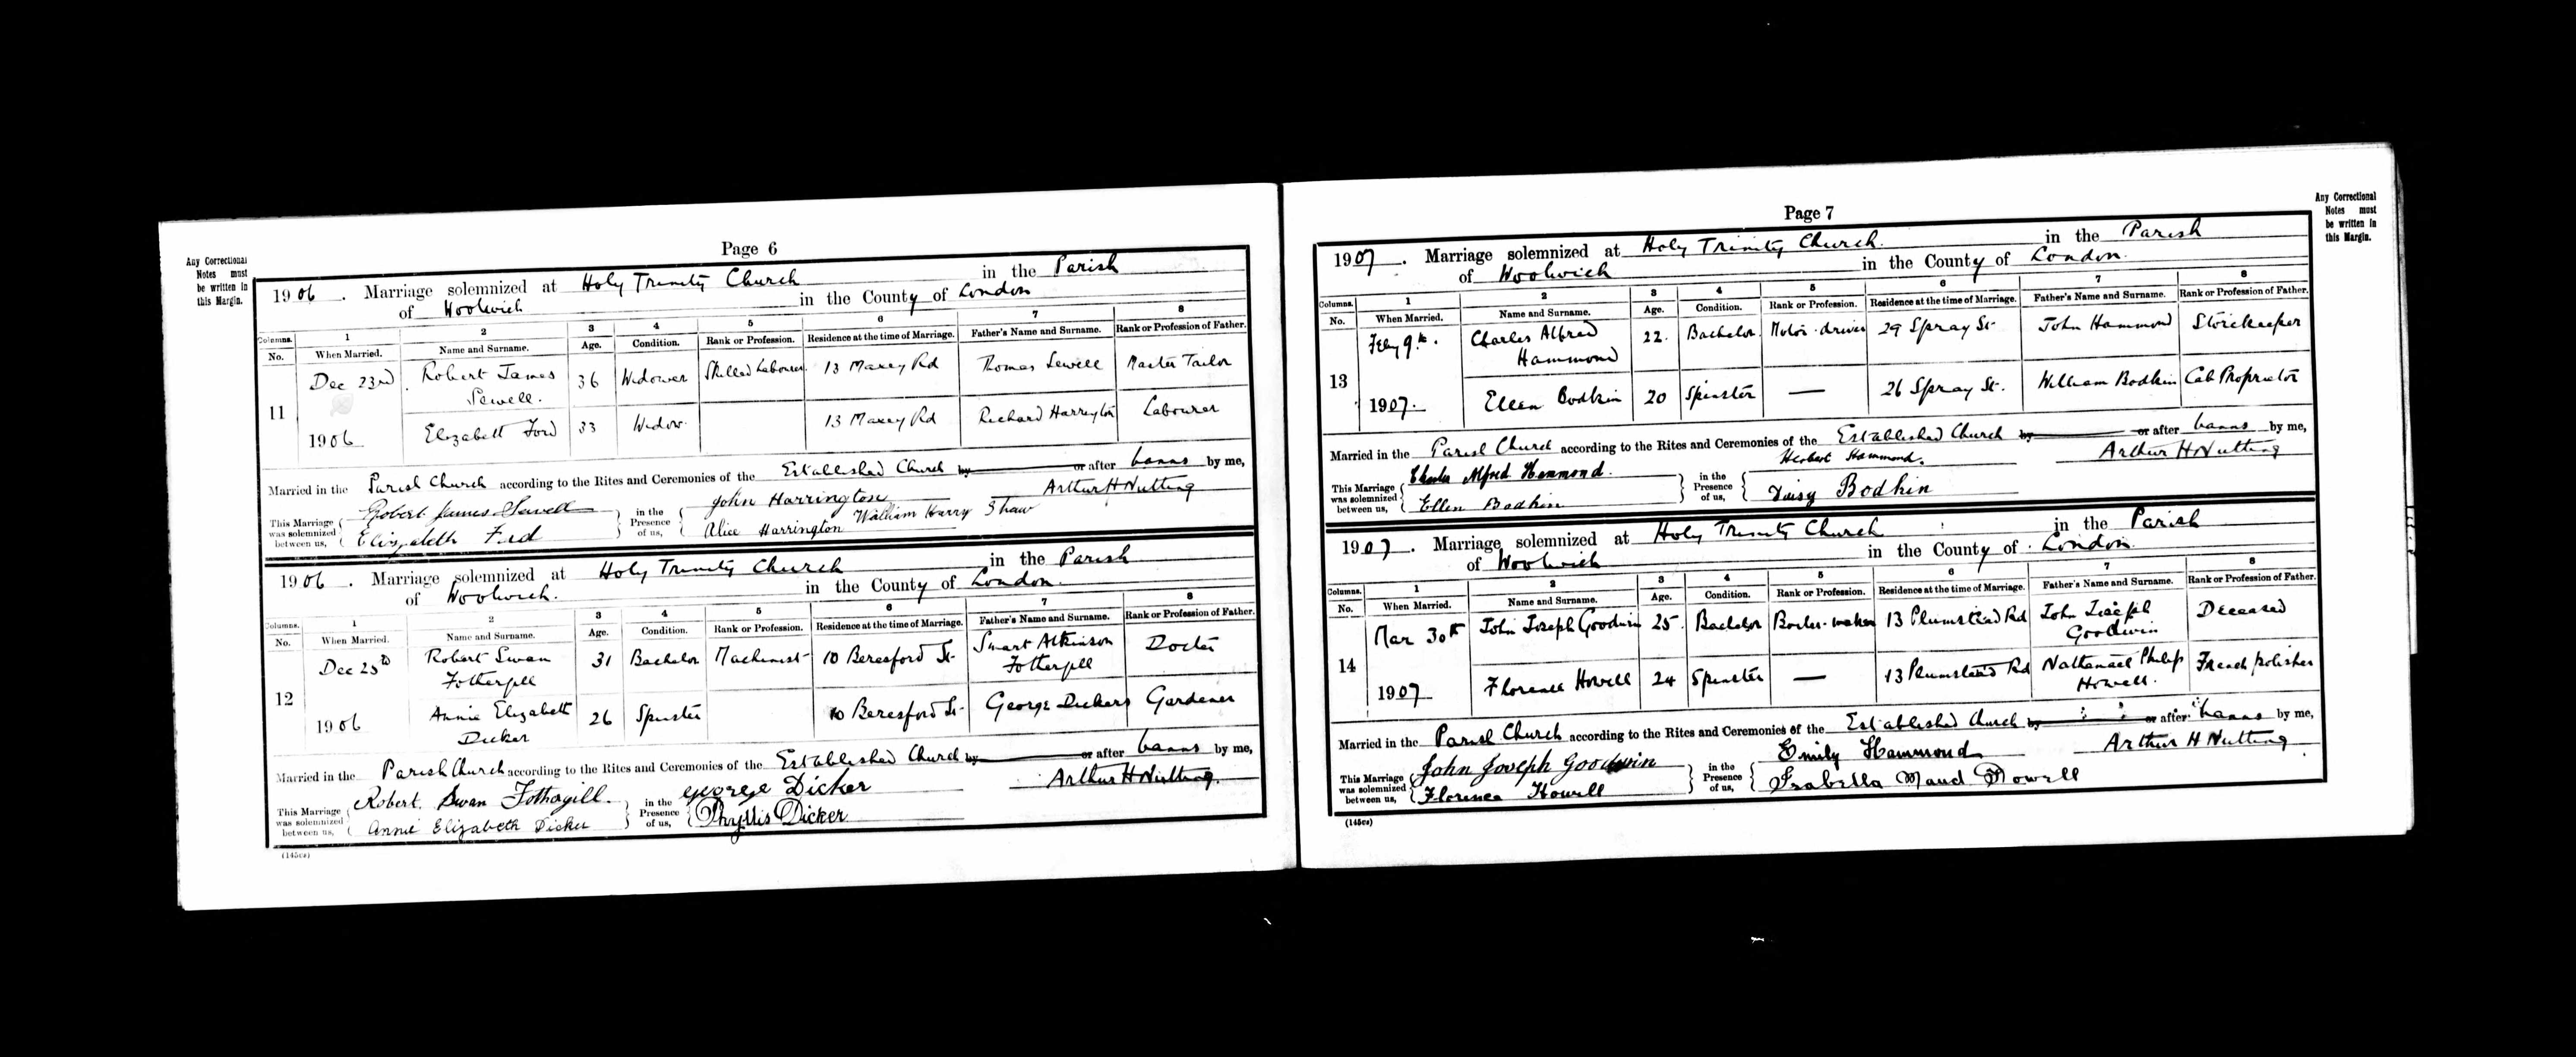 Page 6
Any Correctional
Notes must
be written in
this Margin.
1906. Marriage solemnized at Holy Trinity Church in the Parish
of Woolwich in the County of London
Columns. 1 2 3 4 5 6 7 8
No. When Married. Name and Surname. Age. Condition. Rank or Profession. Residence at the time of Marriage. Father's Name and Surname. Rank or Profession of Father.
11
Dec 23rd Robert James Sewell. 36 Widower Skilled Labourer 13 Maxey Rd Thomas Sewell Master Tailor
1906 Elizabeth Ford 33 Widow 13 Maxey Rd Richard Harrington Labourer
Married in the Parish Church according to the Rites and Ceremonies of the Established Church by or after banns by me,
Arthur H Nutting
This Marriage was solemnized between us, Robert James Sewell
Elizabeth Ford
in the Presence of us, John Harrington
Alice Harrington William Harry Shaw
1906. Marriage solemnized at Holy Trinity Church in the Parish
of Woolwich. in the County of London.
Columns. 1 2 3 4 5 6 7 8
No. When Married. Name and Surname. Age. Condition. Rank or Profession. Residence at the time of Marriage. Father's Name and Surname. Rank or Profession of Father.
12
Dec 25th Robert Swan Fothergill 31 Bachelor Machinist 10 Beresford St Atkinson Fothergill Doctor
1906 Annie Elizabeth Dicker 26 Spinster 10 Beresford St George Dickers Gardener
Married in the Parish Church according to the Rites and Ceremonies of the Established Church by or after banns by me,
Arthur H Nutting.
This Marriage was solemnized between us, Robert Swan Fothergill.
Annie Elizabeth Dicker
in the Presence of us, George Dicker
Phyllis Dicker
(145cs)
Page 7
Any Correctional
Notes must
be written in
this Margin.
1907. Marriage solemnized at Holy Trinity Church. in the Parish
of Woolwich in the County of London.
Columns. 1 2 3 4 5 6 7 8
No. When Married. Name and Surname. Age. Condition. Rank or Profession. Residence at the time of Marriage. Father's Name and Surname. Rank or Profession of Father.
13
Feby 9th. Charles Alfred Hammond 22. Bachelor Motor-driver 29 Spray St John Hammond Storekeeper
1907. Ellen Bodkin 20 Spinster — 26 Spray St. William Bodkin Cab Proprietor
Married in the Parish Church according to the Rites and Ceremonies of the Established Church by or after banns by me,
Arthur H Nutting
This Marriage was solemnized between us, Charles Alfred Hammond.
Ellen Bodkin
in the Presence of us, Herbert Hammond.
Daisy Bodkin
1907. Marriage solemnized at Holy Trinity Church in the Parish
of Woolwich in the County of London.
Columns. 1 2 3 4 5 6 7 8
No. When Married. Name and Surname. Age. Condition. Rank or Profession. Residence at the time of Marriage. Father's Name and Surname. Rank or Profession of Father.
14
Mar 30th John Joseph Goodwin 25. Bachelor Boiler-maker 13 Plumstead Rd John Joseph Goodwin Deceased
1907 Florence Howell 24 Spinster — 13 Plumstead Rd Nathanael Philip Howell. French polisher
Married in the Parish Church according to the Rites and Ceremonies of the Established Church by or after banns by me,
Arthur H Nutting
This Marriage was solemnized between us, John Joseph Goodwin
Florence Howell
in the Presence of us, Emily Hammond
Isabella Maud Howell
(145cs)